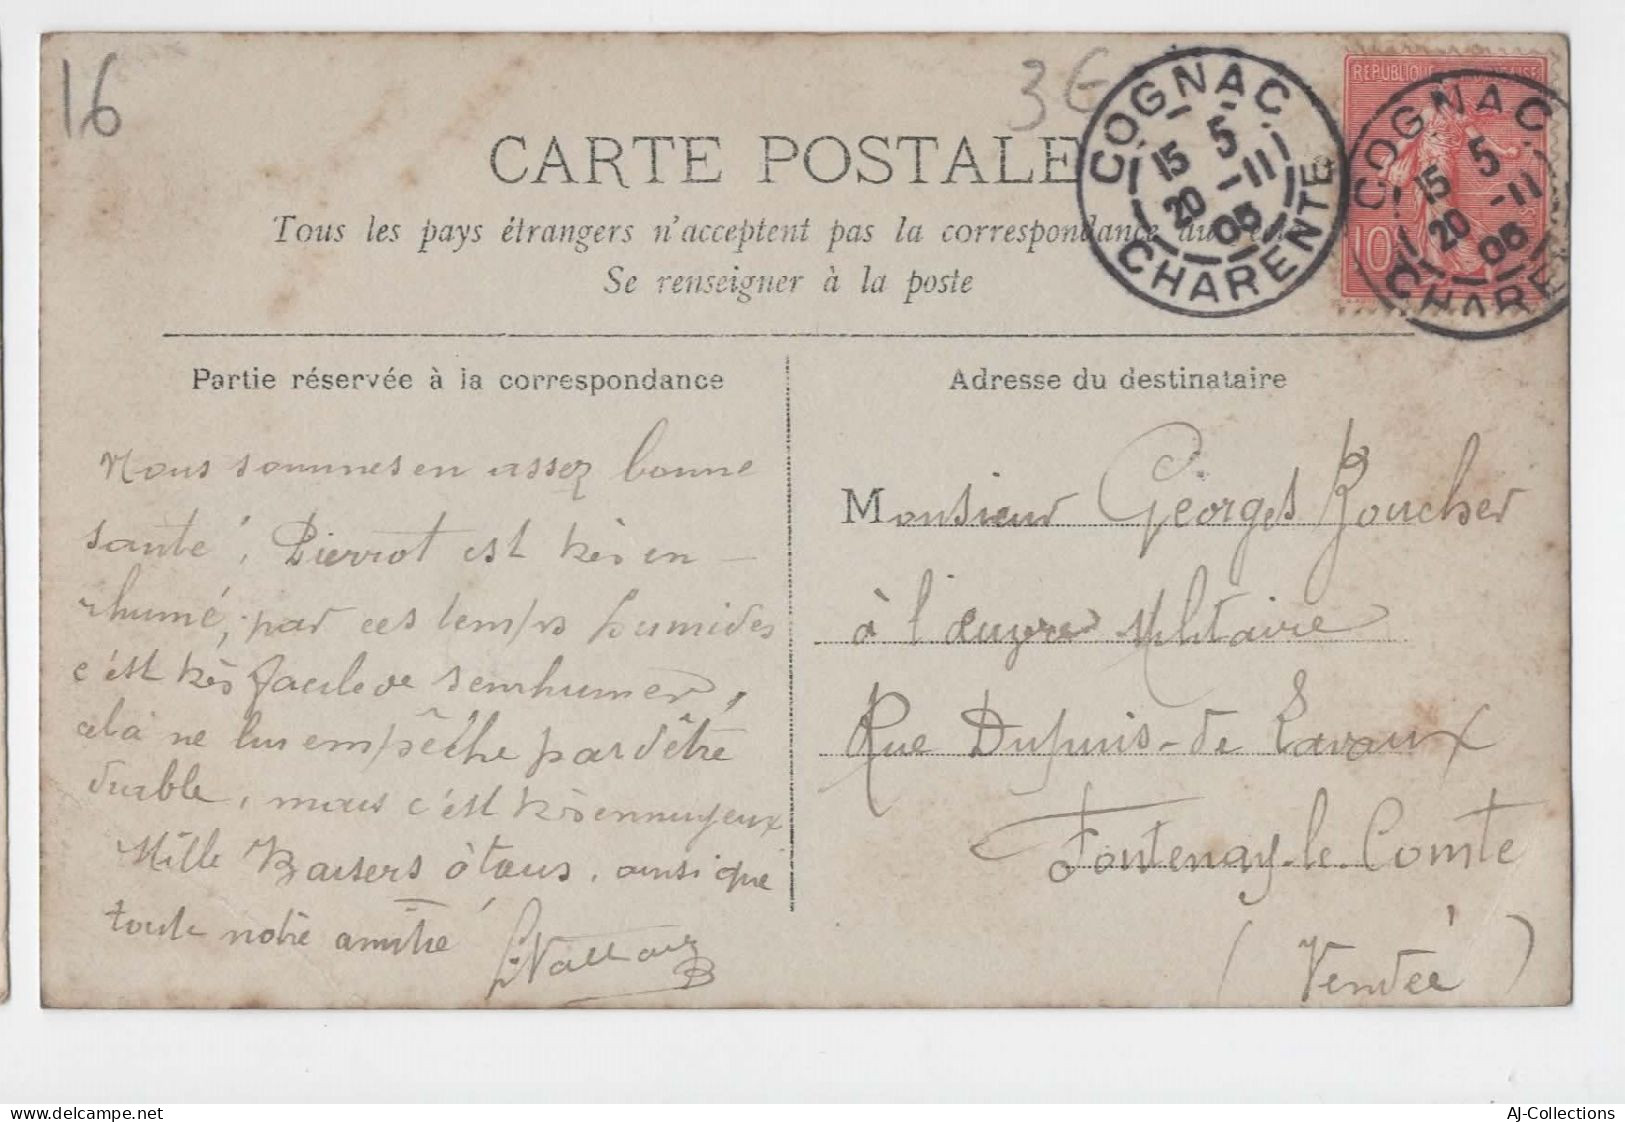 16
3€
CARTE POSTALE
Tous les pays étrangers n'acceptent pas la correspondance au
Se renseigner à la poste
COGNAC
15 5
20 -11
05
CHARENTE
REPUBLIQUE FRANCAISE
10
COGNAC
15 5
20 -11
05
CHARE
Partie réservée à la correspondance
Nous sommes en assez bonne
santé, Pierrot est très en-
rhumé, par ces temps humides
c'est très facile de s'enrhumer,
cela ne lui empêche pas d'être
diable, mais c'est très ennuyeux
Mille Baisers à tous, ainsi que
toute notre amitié
Adresse du destinataire
Monsieur Georges Boucher
à l'œuvre Militaire
Rue Dupuis-de Lavaux
Fontenay-le-Comte
(Vendée)
delcampe.net
AJ-Collections